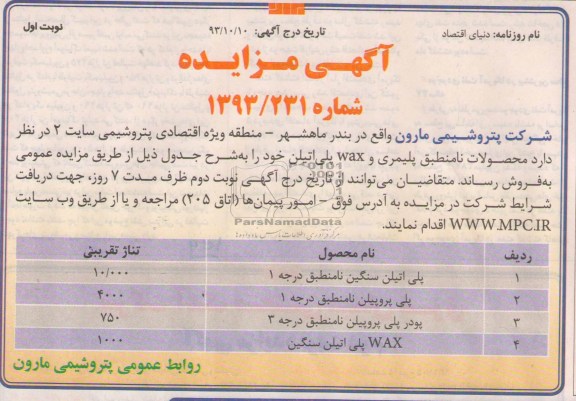 نام روزنامه: دنیای اقتصاد تاریخ درج آگهی: ۹۳/۱۰/۱۰ نوبت اول
آگهی مزایده
شماره ۱۳۹۳/۲۳۱
شرکت پتروشیمی مارون واقع در بندر ماهشهر - منطقه ویژه اقتصادی پتروشیمی سایت ۲ در نظر
دارد محصولات نامنطبق پلیمری و wax پلی‌اتیلن خود را به‌شرح جدول ذیل از طریق مزایده عمومی
به‌فروش رساند. متقاضیان می‌توانند از تاریخ درج آگهی نوبت دوم ظرف مدت ۷ روز، جهت دریافت
شرایط شرکت در مزایده به آدرس فوق - امور پیمان‌ها (اتاق ۲۰۵) مراجعه و یا از طریق وب سایت
WWW.MPC.IR اقدام نمایند.
ParsNamadData
ردیف نام محصول تناژ تقریبی
۱ پلی اتیلن سنگین نامنطبق درجه ۱ ۱۰/۰۰۰
۲ پلی پروپیلن نامنطبق درجه ۱ ۴۰۰۰
۳ پودر پلی پروپیلن نامنطبق درجه ۳ ۷۵۰
۴ WAX پلی اتیلن سنگین ۱۰۰۰
روابط عمومی پتروشیمی مارون